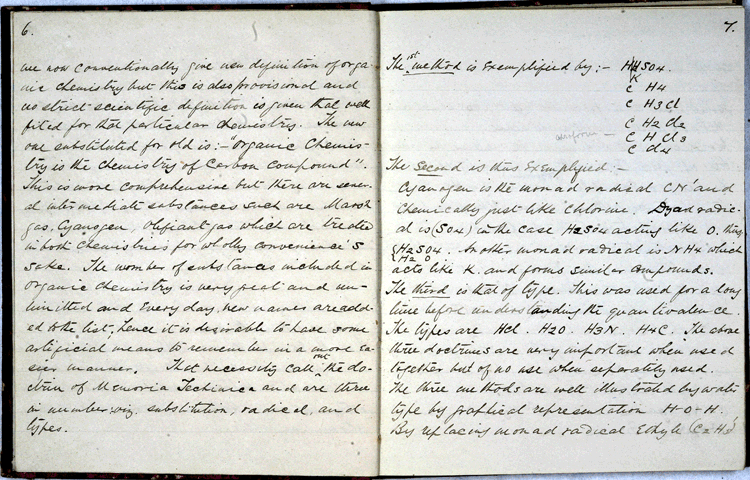 6.
we now conventionally give new definition of orga-
nic chemistry but this is also provisional and
no strict scientific definition is given that well
fited for that particular chemistry. The new
one substituted for old is:— "Organic Chemis-
try is the chemistry of Carbon Compound".
This is more comprehensive but there are sever-
al intermediate substances such are Marsh
gas, Cyanogen, Olifiant gas which are treated
in both chemistries for wholly convenience's
sake. The number of substances included in
organic chemistry is very great and un-
limitted and every day, new names are add-
ed to the list, hence it is desirable to have some
artificial means to remember in a more ea-
sier manner. That necessity call out the do-
ctrin of Memoria Techinica and are three
in number, viz, substitution, radical, and
types.
7.
The 1st method is exemplified by:— HHSO4.
K
C H4
C H3Cl
C H2Cl2
C H Cl3
C Cl4
The second is thus exemplified:—
Cyanogen is the monad radical CN and
chemically just like chlorine. Dyad radic-
al is (SO4) in the case H2SO4 acting like O, thus
{H2SO4. Another monad radical is NH4 which
{H2 O
acts like K. and forms similar compounds.
The third is that of type. This was used for a long
time before understanding the quantivalence.
The types are HCl. H2O. H3N. H4C. The above
three doctrines are very important when used
together but of no use when separately used.
The three methods are well illustrated by water
type by graphical representation H-O-H.
By replacing monad radical Ethyle (C2H5)